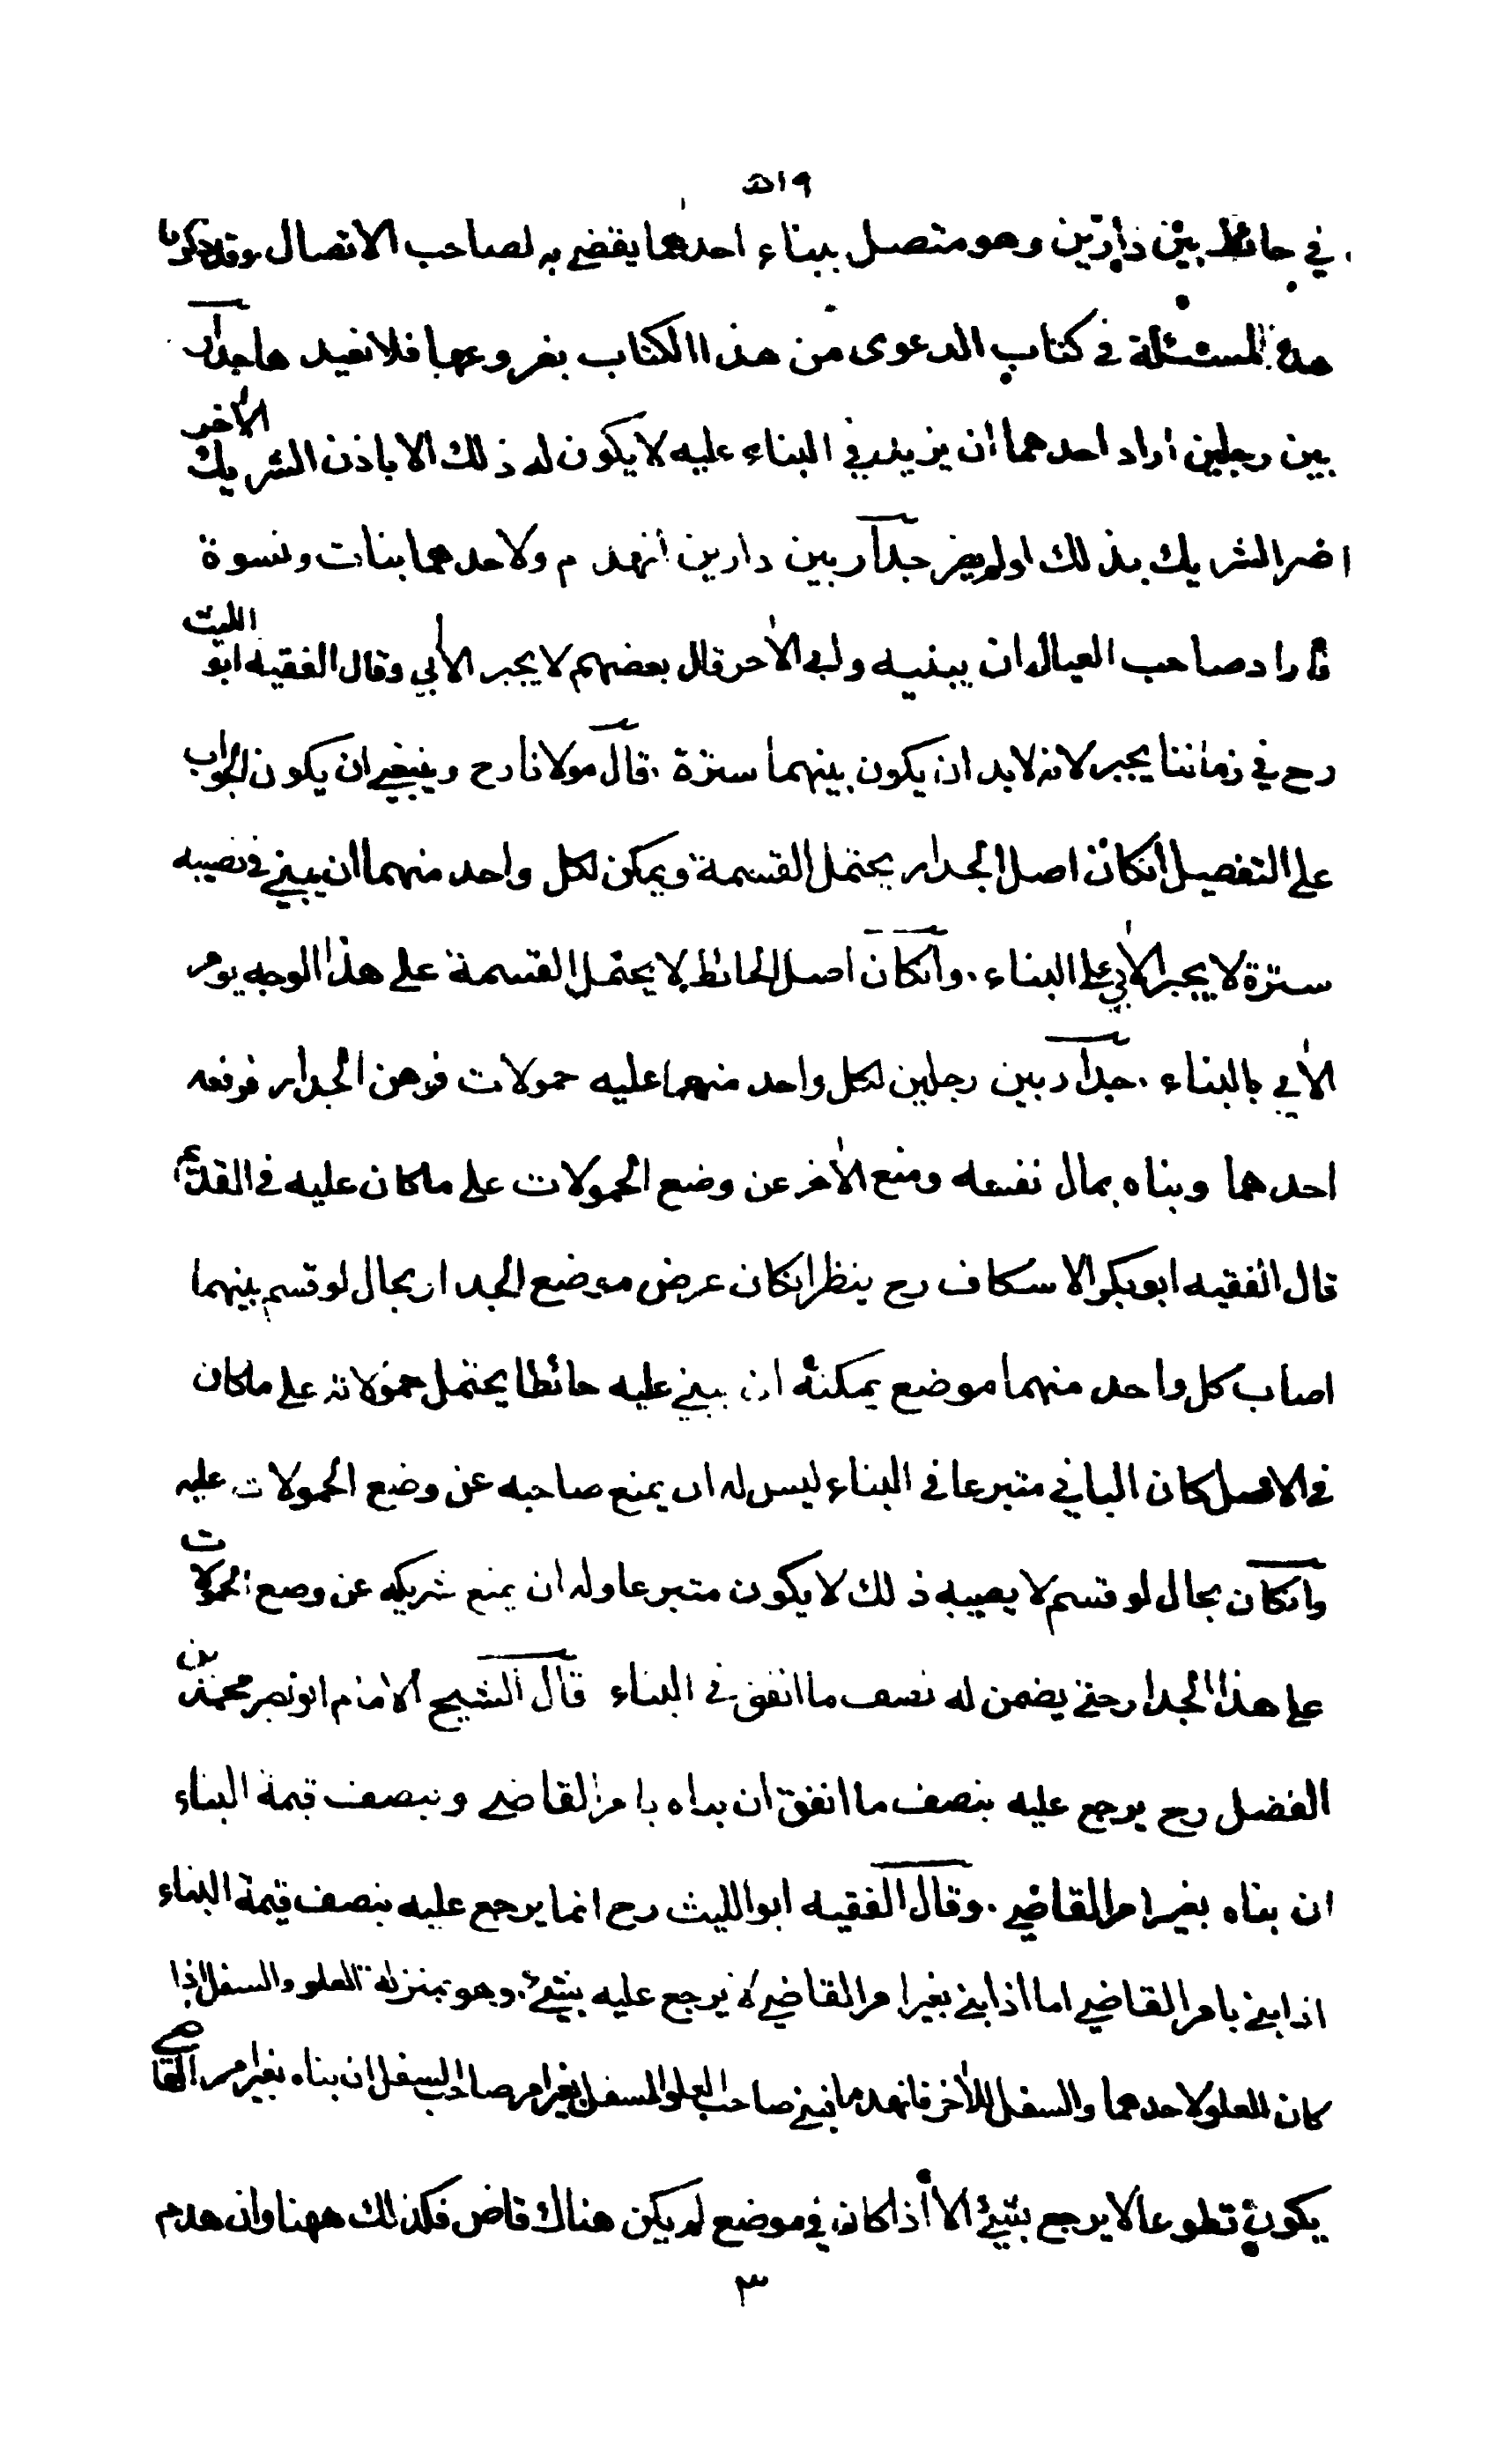 ٥١٩
في حائط بين دارين وهو متصل ببناء احدهما يقضي به لصاحب الاتصال وقد ذكرنا
هذه المسئلة في كتاب الدعوى من هذا الكتاب بفروعها فلا نعيدها جدار
بين رجلين اراد احدهما ان يزيد في البناء عليه لا يكون له ذلك الا باذن الشريك الاٰخر
اضر الشريك بذلك اولم يضر جدار بين دارين انهدم ولاحدهما بنات ونسوة
فاراد صاحب العيال ان يبنيه وابى الاٰخر قال بعضهم لا يجبر الاٰبي وقال الفقيه ابو الليث
رح في زماننا يجبر لانه لابد ان يكون بينهما سترة . قال مولانا رح وينبغي ان يكون الجواب
على التفصيل انكان اصل الجدار يحتمل القسمة ويمكن لكل واحد منهما ان يبني في نصيبه
سترة لا يجبر الاٰبي على البناء . وانكان اصل الحائط لا يحتمل القسمة على هذا الوجه يومر
الاٰبي بالبناء . جدار بين رجلين لكل واحد منهما عليه حمولات فوهن الجدار فرفعه
احدهما وبناه بمال نفسه ومنع الاٰخر عن وضع الحمولات على ما كان عليه في القديم
قال الفقيه ابو بكر الاسكاف رح ينظر انكان عرض موضع الجدار بحال لو قسم بينهما
اصاب كل واحد منهما موضع يمكنه ان يبني عليه حائطا يحتمل حمولاته على ما كان
في الاصل كان الباني متبرعا في البناء ليس له ان يمنع صاحبه عن وضع الحمولات عليه
وانكان بحال لو قسم لا يصيبه ذلك لا يكون متبرعا وله ان يمنع شريكه عن وضع الحمولات
على هذا الجدار حتى يضمن له نصف ما انفق في البناء قال الشيخ الامام ابو نصر محمد بن
الفضل رح يرجع عليه بنصف ما انفق ان بناه بامر القاضي وبنصف قيمة البناء
ان بناه بغير امر القاضي . وقال الفقيه ابو الليث رح انما يرجع عليه بنصف قيمة البناء
اذا بنى بامر القاضي اما اذا بنى بغير امر القاضي لا يرجع عليه بشيء . وهو بمنزلة العلو والسفل اذا
كان العلو لاحدهما والسفل للاٰخر فانهدما فبنى صاحب العلو السفل بغير امر صاحب السفل ان بناه بغير امر القاضي
يكون تطوعا لا يرجع بشيء الا اذا كان في موضع لم يكن هناك قاض فكذلك ههنا وان هدم
٣